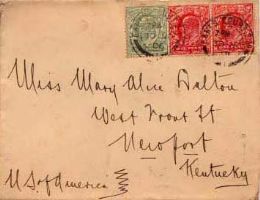 Miss Mary Alice Dalton
West Front St
Newport
Kentucky
U.S. of America